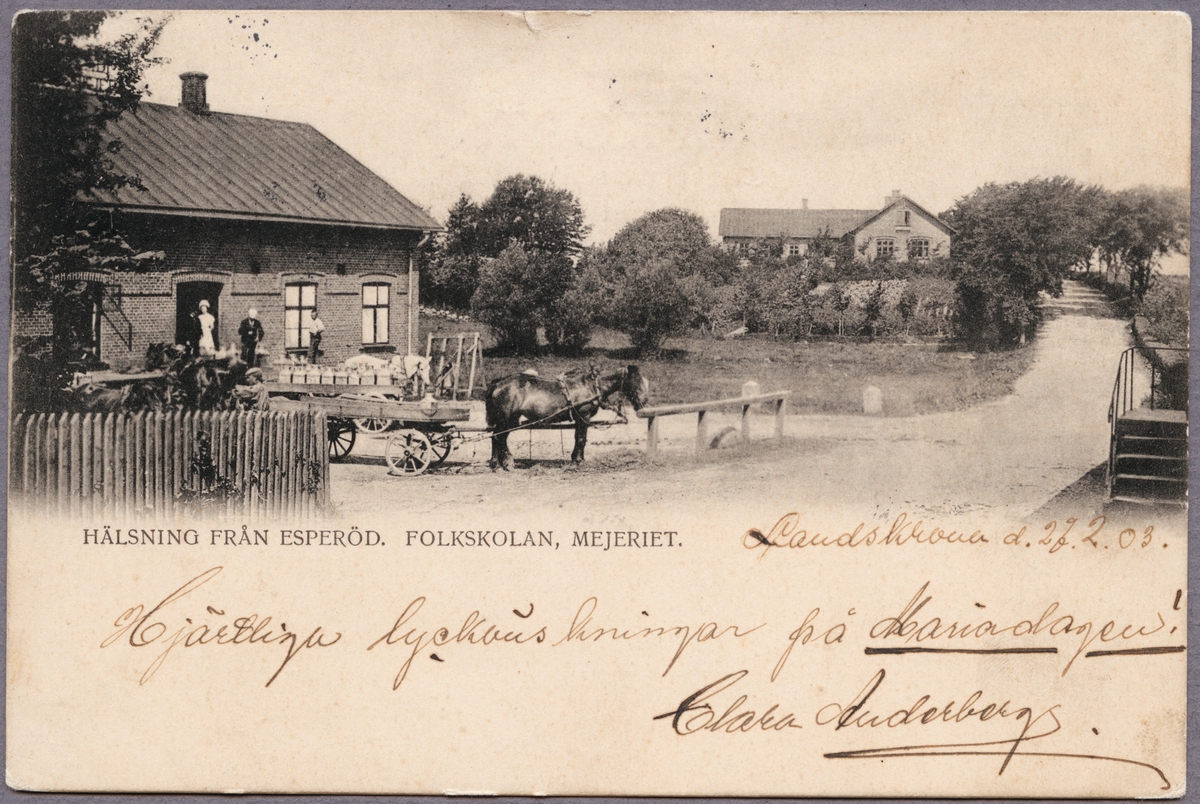 HÄLSNING FRÅN ESPERÖD. FOLKSKOLAN, MEJERIET.
Landskrona d. 27.2.03.
Hjärtliga lyckönskningar på Mariadagen!
Clara Anderberg.